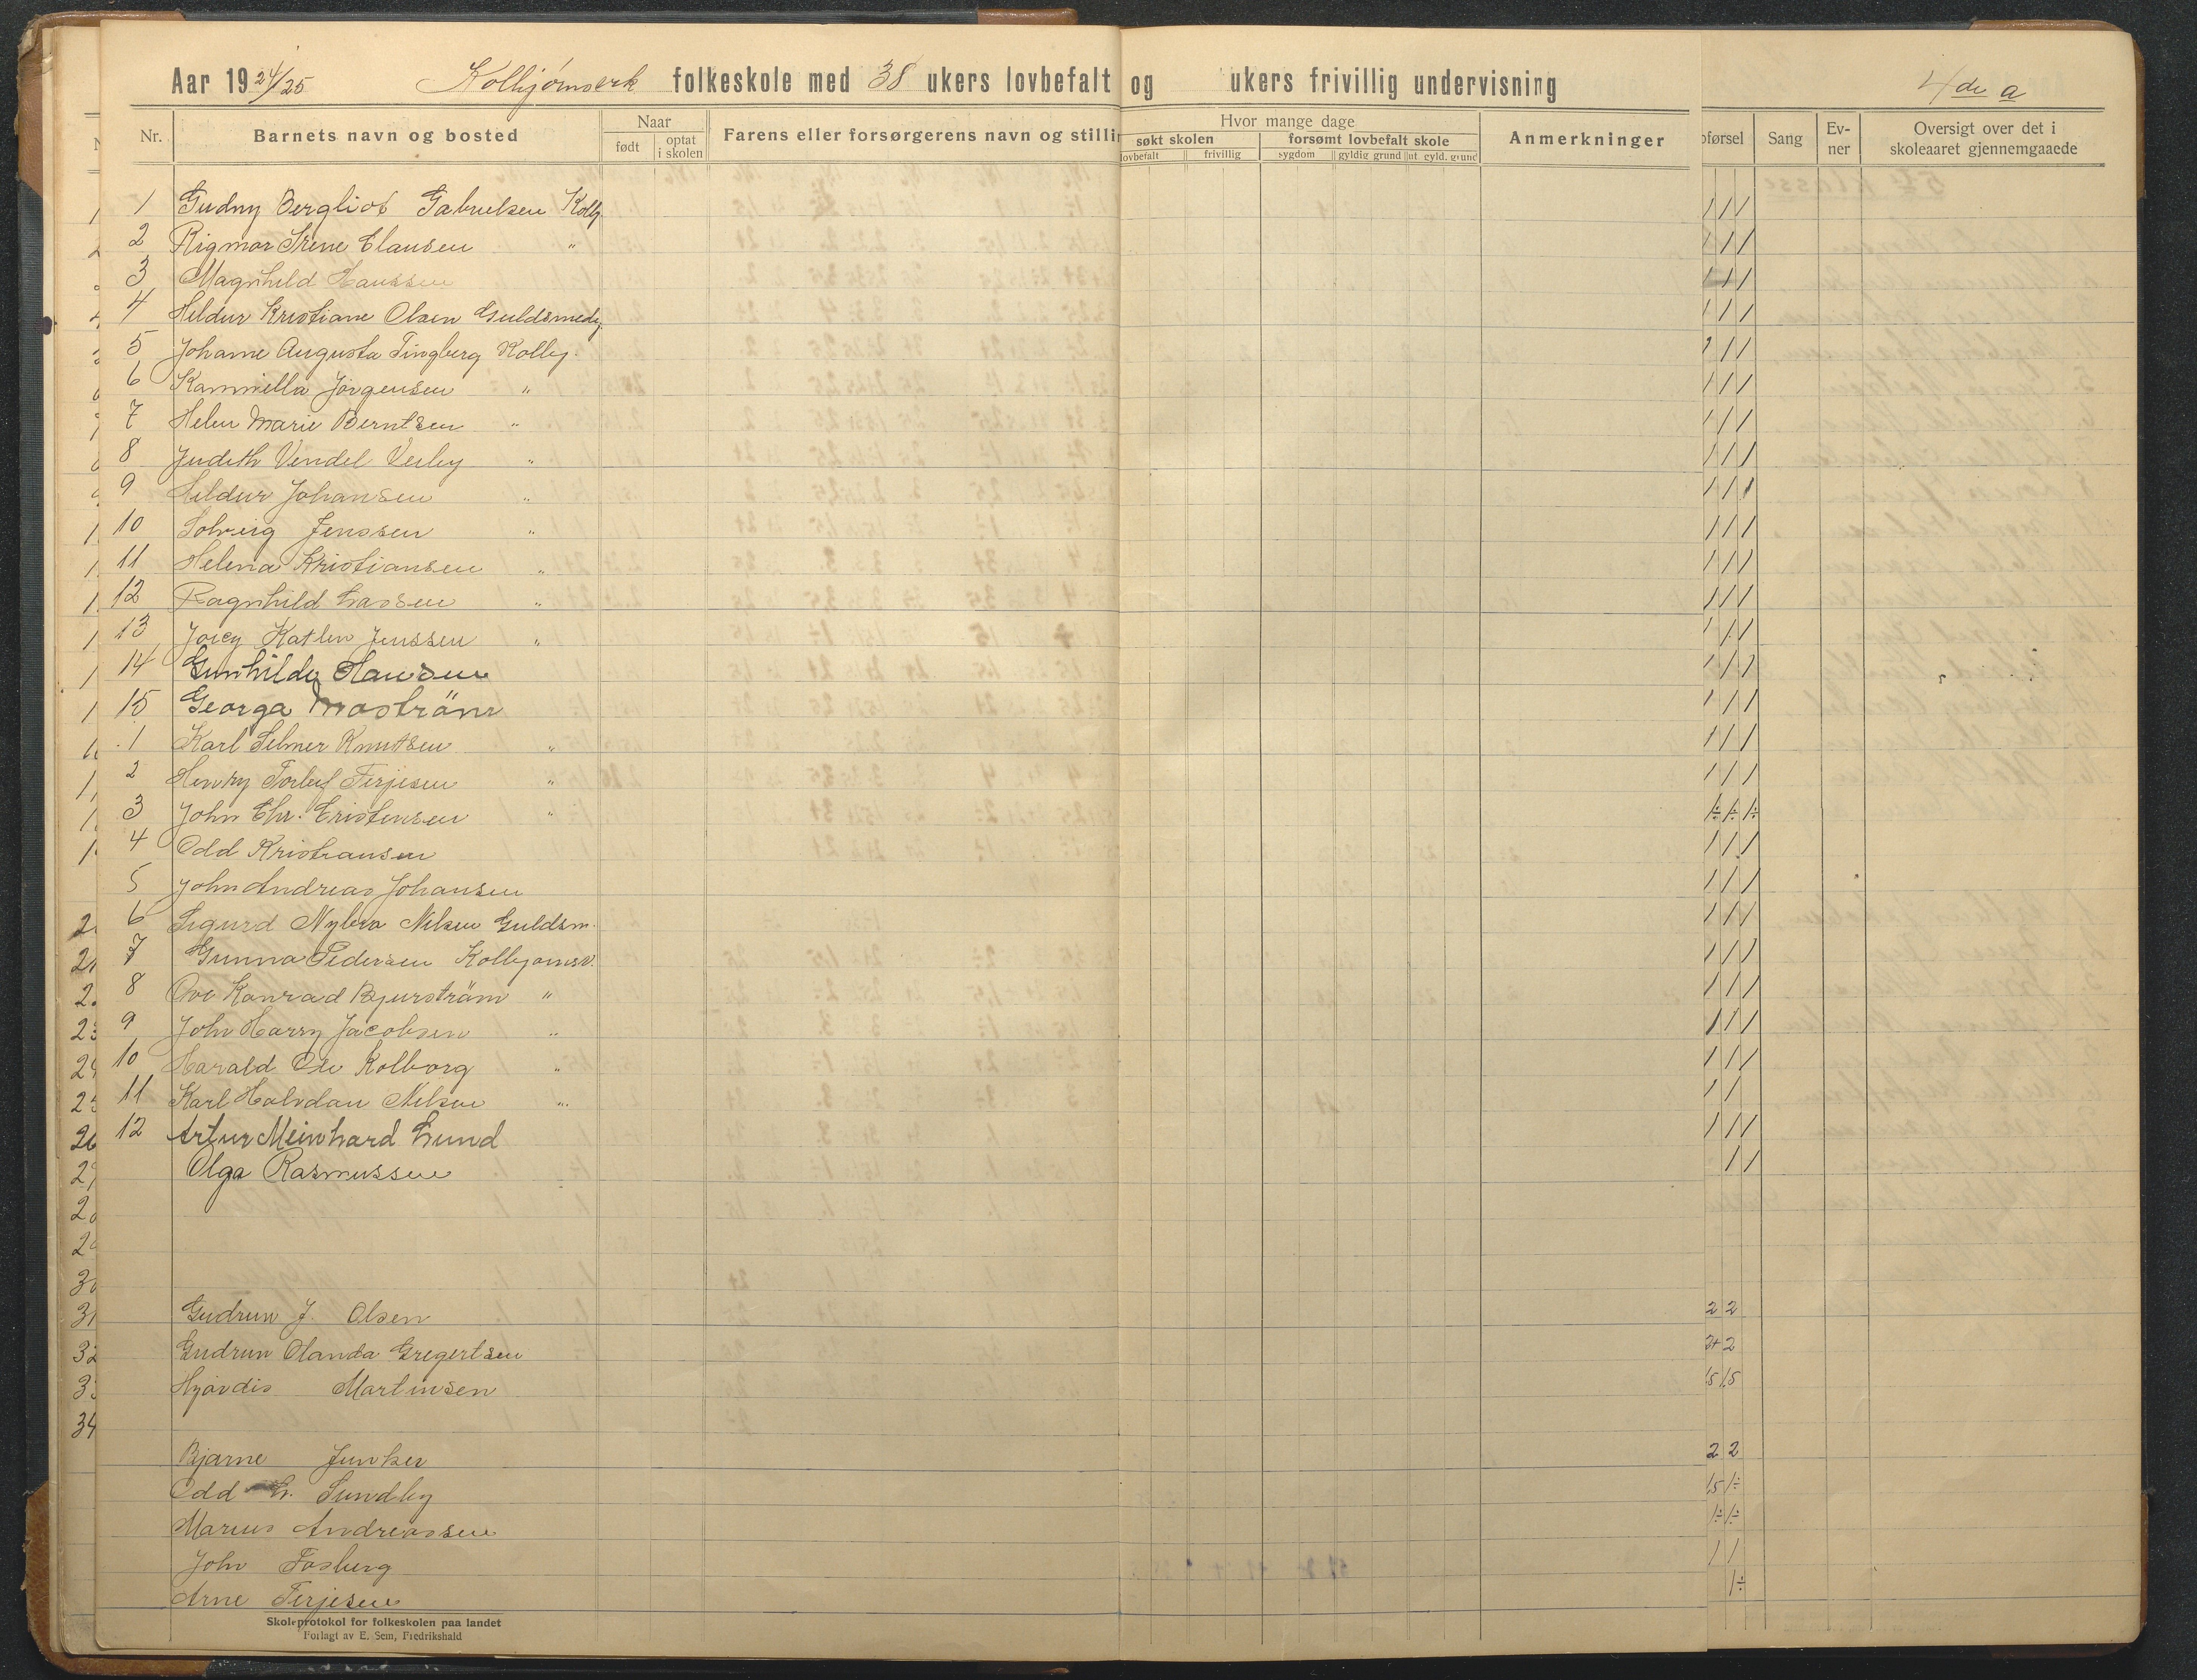 Aar 1924/25 Kolbjørnsvik folkeskole med 38 ukers lovbefalt og ukers frivillig undervisning
4de a
Nr. Barnets navn og bosted Naar født optat i skolen Farens eller forsørgerens navn og stillin Hvor mange dage søkt skolen lovbefalt frivillig forsømt lovbefalt skole sygdom gyldig grund ut. gyld. grund Anmerkninger pførsel Sang Ev-ner Oversigt over det i skoleaaret gjennemgaaede
1 Gudny Bergliot Gabrielsen Kolbj 1 1 1
2 Rigmor Irene Clausen " 1 1 1
3 Magnhild Hanssen 1 1 1
4 Hildur Kristiane Olsen Guldsmedg. 1 1 1
5 Johanne Augusta Tingberg Kolbj. 1 1
6 Kammilla Jørgensen " 1 1 1
7 Helen Marie Berntsen " 1 1 1
8 Judith Vendel Vesby " 1 1 1
9 Hildur Johansen " 1 1 1
10 Solveig Jenssen " 1 1 1
11 Helena Kristiansen " 1 1 1
12 Ragnhild Lassen " 1 1 1
13 Joicy Katlen Jenssen " 1 1 1
14 Gunhilda Hansen 1 1 1
15 Georga Moström 1 1 1
1 Karl Selmer Knutsen " 1 1 1
2 Henry Torleif Terjesen " 1 1 1
3 John Chr. Cristensen " 1÷ 1÷ 1÷
4 Odd Kristiansen 1 1 1
5 John Andreas Johansen 1 1 1
6 Sigurd Nybro Nilsen Guldsm. 1 1 1
7 Gunna Pedersen Kolbjørnsv. 1 1 1
8 Ove Konrad Bjurström " 1 1 1
9 John Harry Jacobsen " 1 1 1
10 Harald Ole Kolborg " 1 1 1
11 Karl Halvdan Nilsen " 1 1
12 Artur Meinhard Lund 1 1 1
Olga Rasmussen 1 1
Gudrun J. Olsen 2 2
Gudrun Olanda Gregertsen 2+ 2
Hjørdis Martinsen 1,5 1,5
Bjarne Junker 2 2
Odd Sundby 1,5 1÷
Marius Andreassen 1÷ 1÷
John Fosberg 1 1
Arne Terjesen 1÷
Skoleprotokol for folkeskolen paa landet
Forlagt av E. Sem, Fredrikshald